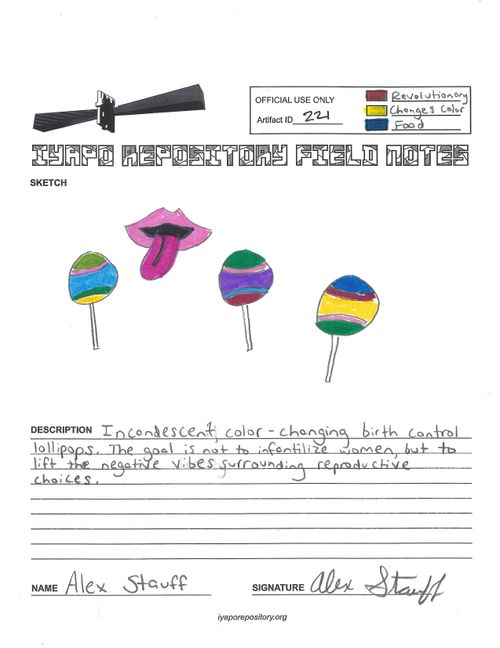 OFFICIAL USE ONLY
Artifact ID 221
Revolutionary
Changes Color
Food
IYAPO REPOSITORY FIELD NOTES
SKETCH
DESCRIPTION Incandescent, color-changing birth control
lollipops. The goal is not to infantilize women, but to
lift the negative vibes surrounding reproductive
choices.
NAME Alex Stauff
SIGNATURE Alex Stauff
iyaporepository.org